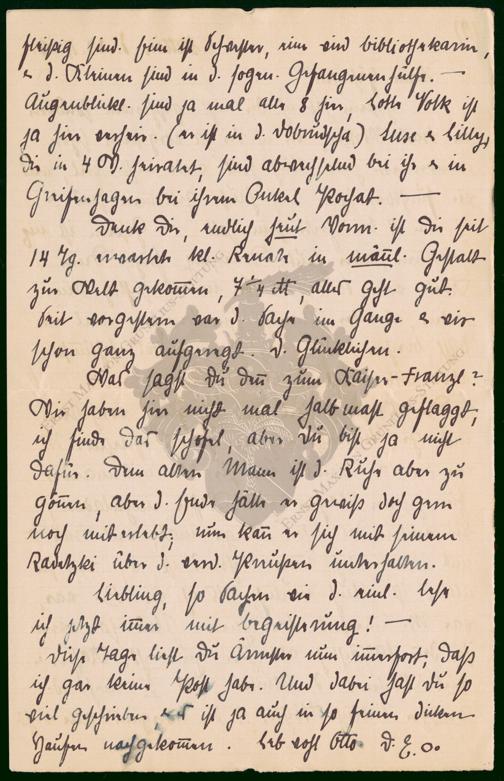 fleißig sind. Eine ist Schwester, eine wird Bibliothekarin,
u. d. Kleinen sind in d. sogen. Gefangenenhülfe. —
Augenblickl. sind ja mal alle 8 hier, Lotte Volk ist
ja hier verheir. (er ist in d. Dobrudscha) Suse u. Lilly,
die in 4 W. heiratet, sind abwechselnd bei ihr u. in
Greifenhagen bei ihrem Onkel Kochat. —
Denk Dir, endlich heut Vorm. ist die seit
14 Tg. erwartete kl. Renate in männl. Gestalt
zur Welt gekommen, 7 1/4 ℔, alles geht gut.
Seit vorgestern war d. Sache im Gange u. wir
schon ganz aufgeregt. D. Glücklichen.
Was sagst Du denn zum Kaiser-Franzl?
Wir haben hier nicht mal halbmast geflaggt,
ich finde das schofel, aber Du bist ja nicht
dafür. Dem alten Mann ist d. Ruhe aber zu
gönnen, aber d. Ende hätte er gewiß doch gern
noch miterlebt; nun kann er sich mit seinem
Radetzki über d. verd. Preußen unterhalten.
Liebling, so Sachen wie d. einl. lese
ich jetzt immer mit Begeisterung! —
Diese Tage liest Du Ärmster nun immerfort, daß
ich gar keine Post habe. Und dabei hast Du so
viel geschrieben u. es ist ja auch in so feinen dicken
Haufen nachgekommen. Leb wohl Otto D. E.
ERNST MAGNUS